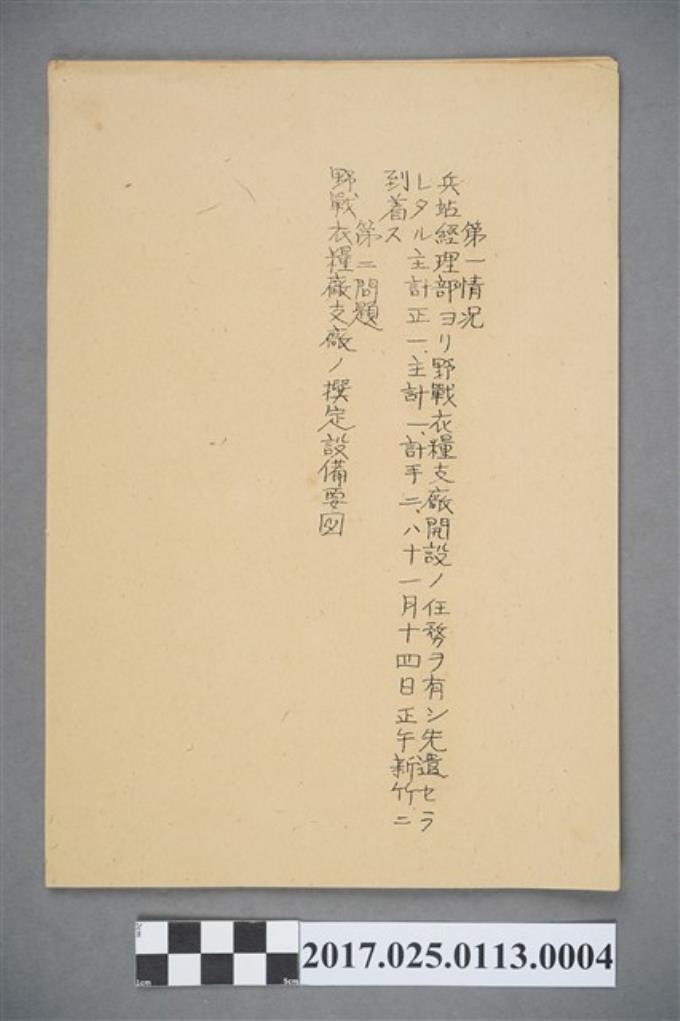 第一情況
兵站經理部ヨリ野戰衣糧支廠開設ノ任務ヲ有シ先遣セラ
レタル主計正一、主計一、計手二、ハ十一月十四日正午新竹ニ
到着ス
第二問題
野戰衣糧廠支廠ノ撰定設備要図
1cm
5cm
2017.025.0113.0004